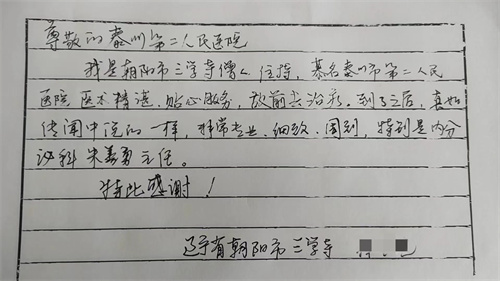 尊敬的泰州第二人民医院
我是朝阳市三学寺僧人住持，慕名泰州市第二人民
医院医术精湛，贴心服务，故前去治疗。到了之后，真如
传闻中说的一样，非常专业、细致、周到，特别是内分
泌科 朱善勇主任。
特此感谢！
辽宁省朝阳市三学寺